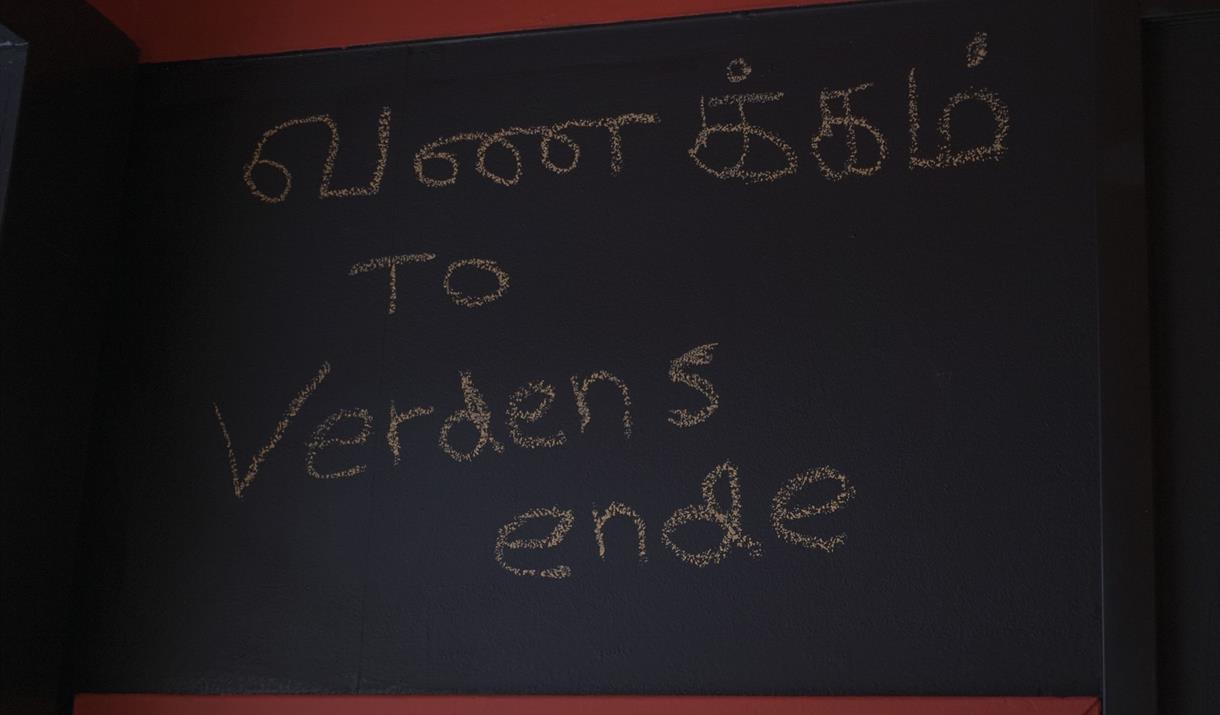 வணக்கம்
TO
Verdens
ende